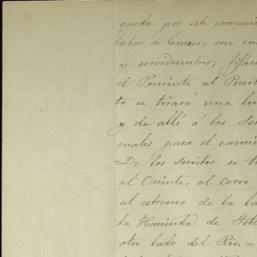 queda por este convenio
labor de Cruces, con in
y servidumbres; fiján
el Poniente al Puest
to se tirará una lin
y de allí á los Sa
cuales pasa el camin
De los Sauitos se t
al Oriente, al Cerro
al estremo de la la
la Hacienda de
otro lado del Rio =